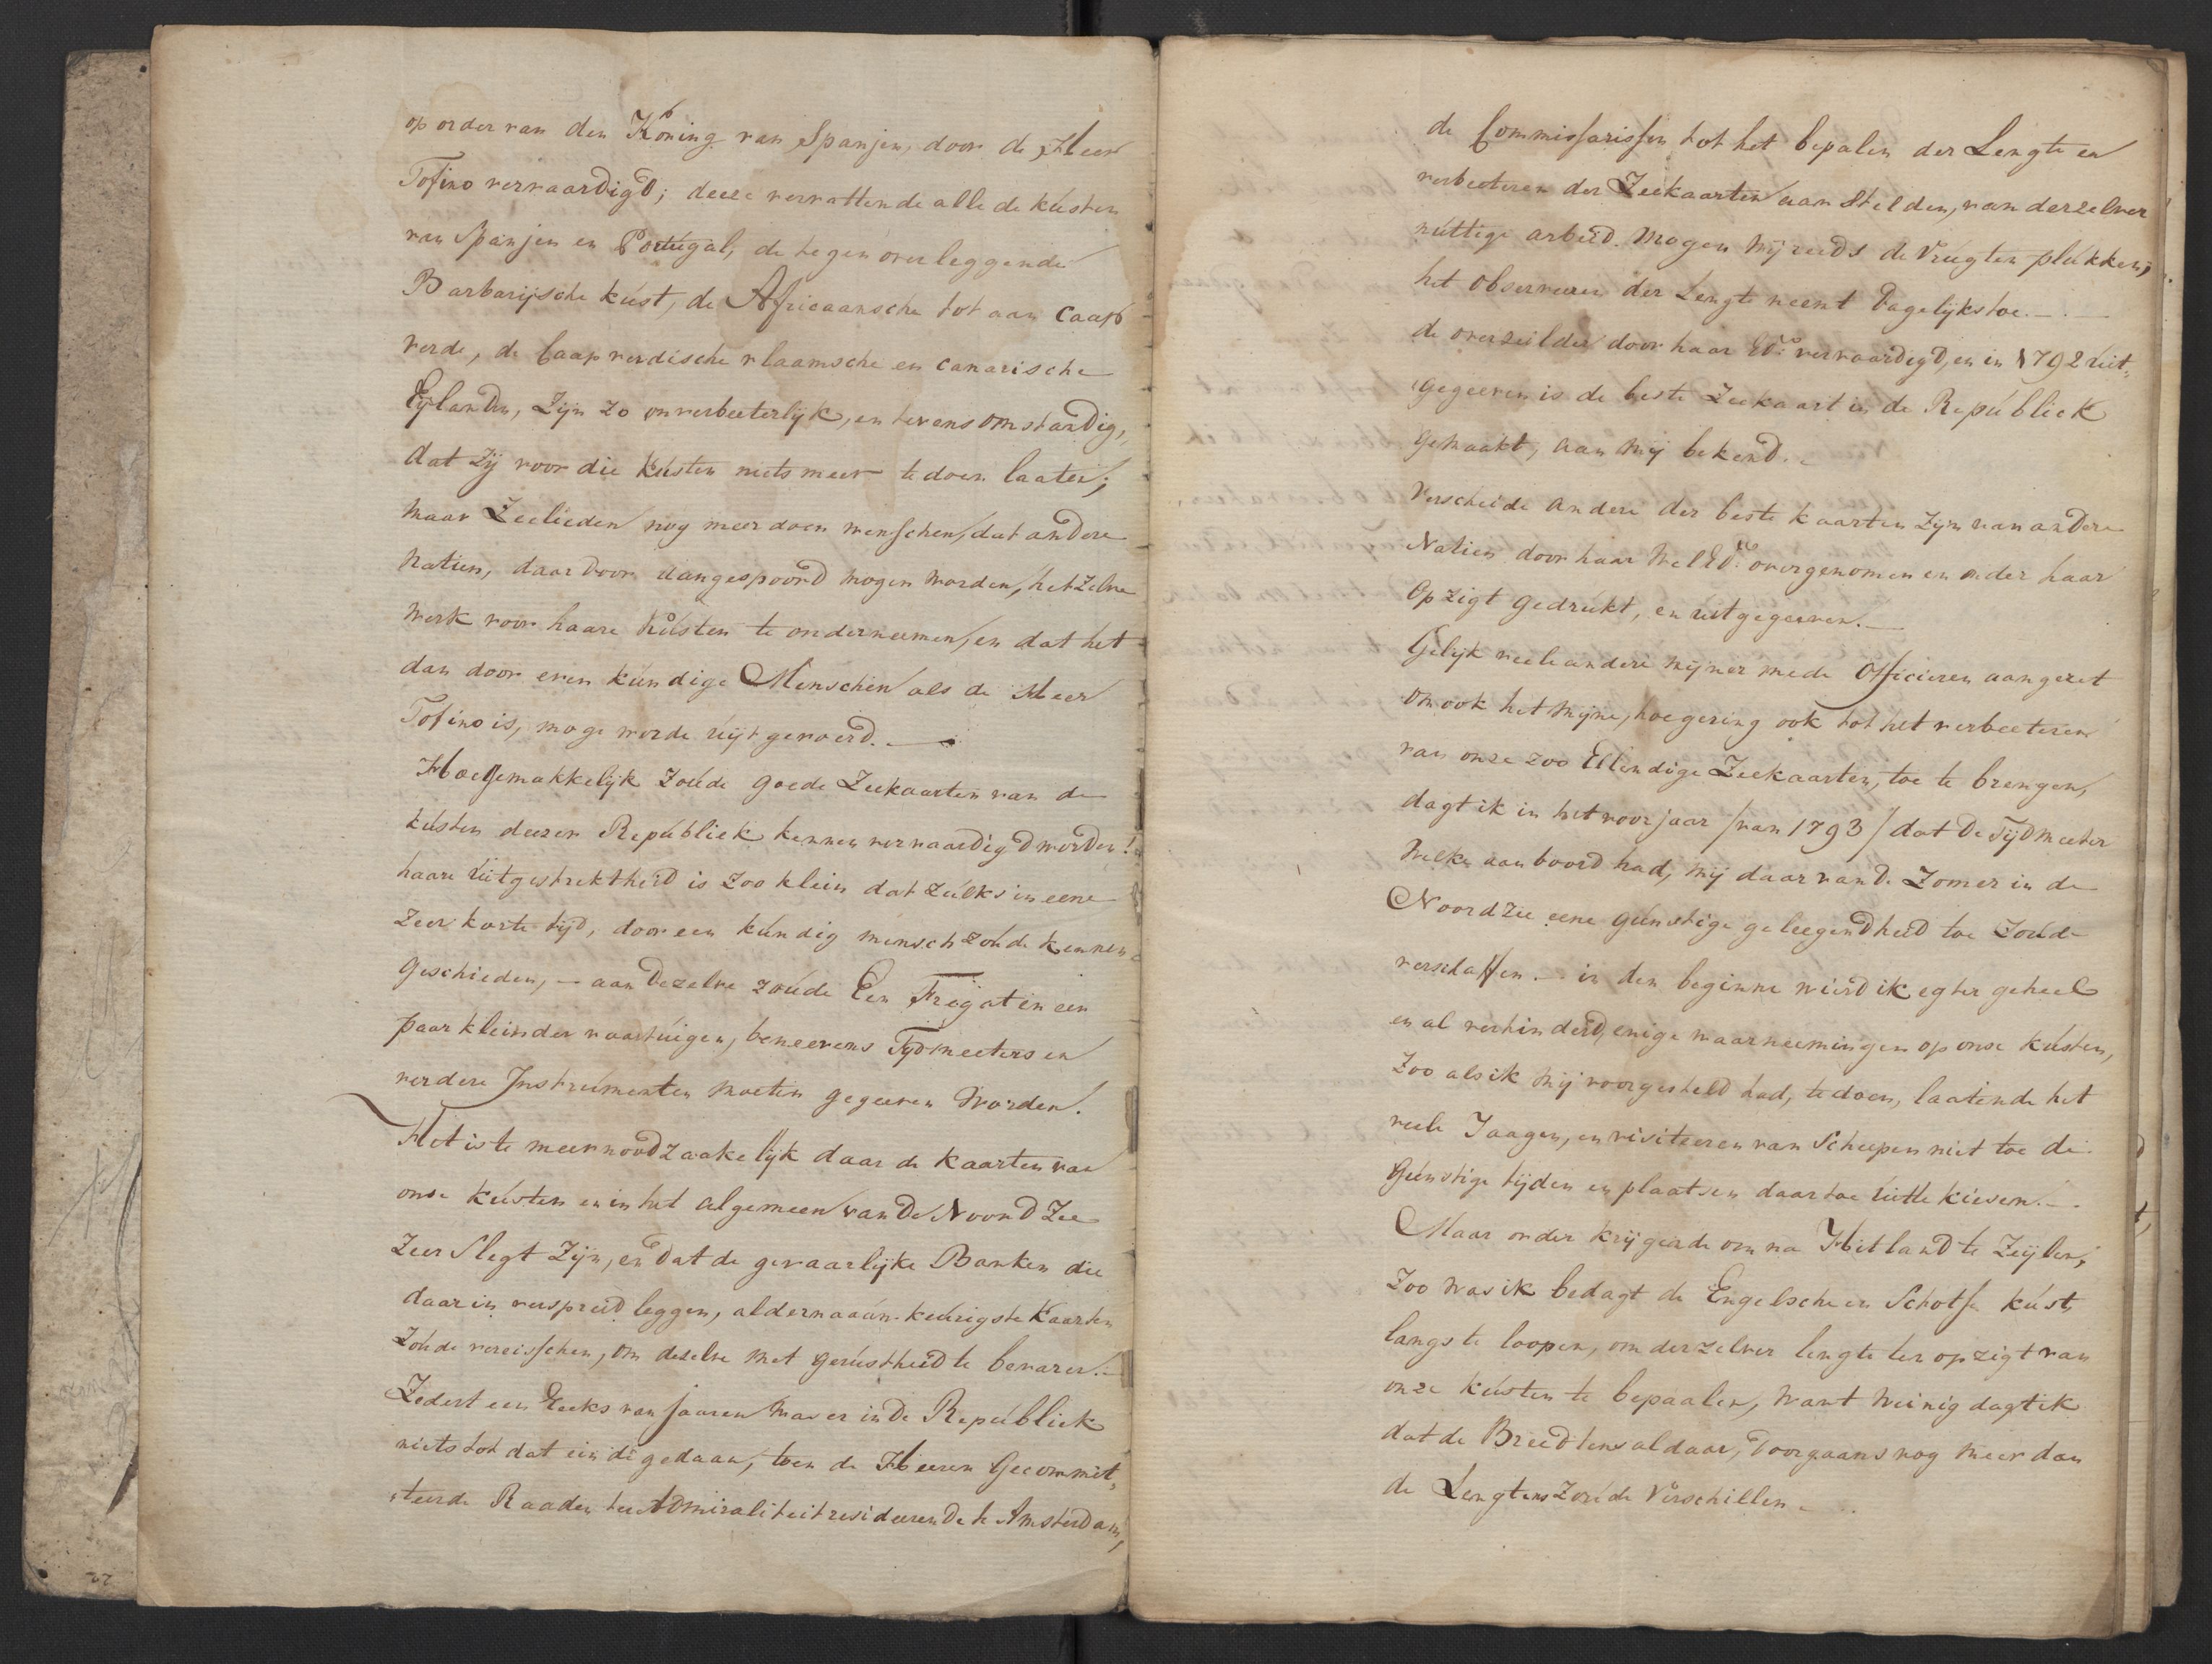 op order van den Koning van Spanjen, door de Heer
Tofino vervaardigd; deeze vervattende alle de kusten
van Spanjen en Portugal, de tegen over leggende
Barbarijsche kust, de Africaansche tot aan Caap
verde, de Caap verdische vlaamsche en canarische
Eijlanden, Zijn zo onverbeeterlijk, en tevens omstandig,
dat zij voor die kusten niets meer te doen laaten;
maar Zeelieden nog meer doen wenschen, dat andere
Natien, daar door aangespoord mogen worden, het zelve
werk voor haare kusten te onderneemen, en dat het
dan door even kundige Menschen als de Heer
Tofino is, moge worde uijtgevoerd. —
Hoe gemakkelijk zoude goede Zeekaarten van de
kusten deezer Republiek kennen vervaardigd worden!
haare uitgestrektheid is zoo klein dat zulks in eene
zeer korte tijd, door een kundig mensch zoude kennen
geschieden, — aan dezelve zoude Een Fregat en een
paar kleinder vaartuigen, beneevens Tijdmeeters en
verdere Instrumenten moeten gegeeven worden.
Het is te meer noodzaakelijk daar de kaarten van
onse kusten en in het algemeen van de Noord Zee
zeer slegt zijn, en dat de gevaarlijke Banken die
daar in verspreid leggen, aldernaauwkeurigste kaarten
zoude vereisschen, om dezelve met gerustheid te bevaren.—
Zedert een Reeks van jaaren was er in de Republiek
niets tot dat einde gedaan, toen de Heeren Gecommit-
-teerde Raaden ter Admiraliteit resideerende te Amsterdam,
de Commissarissen tot het bepalen der Lengte en
verbeeteren der Zeekaarten aan stelden, van derzelver
nuttige arbeid. mogen wij reeds de Vrugten plukken,
het observeeren der Lengte neemt dagelijks toe. —
de overzeilder door haar Ed: vervaardigd, en in 1792 uit-
gegeeven is de beste Zeekaart in de Republiek
gemaakt, aan mij bekend.
Verscheide andere der beste kaarten zijn van andere
Natien door haar Wel Ed: overgenomen en onder haar
opzigt gedrukt, en uitgegeeven. —
Gelijk veele andere mijner mede Officieren aangezet
om ook het mijne, hoe gering ook tot het verbeeteren
van onze zoo Ellendige Zeekaarten, toe te brengen,
dagt ik in het voorjaar /van 1793/ dat de Tijdmeeter
welke aan boord had, mij daar van de Zomer in de
Noordzee eene gunstige geleegendheid toe zoude
verschaffen. — in den beginne wierd ik egter geheel
en al verhinderd, enige waarneemingen op onse kusten,
zoo als ik mij voorgesteld had, te doen, laatende het
veele Jaagen, en visiteeren van Scheepen niet toe de
gunstige tijden en plaatsen daar toe uit te kiesen. —
Maar order krijgende om na Hitland te Zeijlen,
zoo was ik bedagt de Engelsche en Schotse kust
langs te loopen, om derzelver lengte ten opzigt van
onze kusten te bepaalen, want weinig dagt ik
dat de Breedtens aldaar, doorgaans nog meer dan
de Lengtens zoude Verschillen.